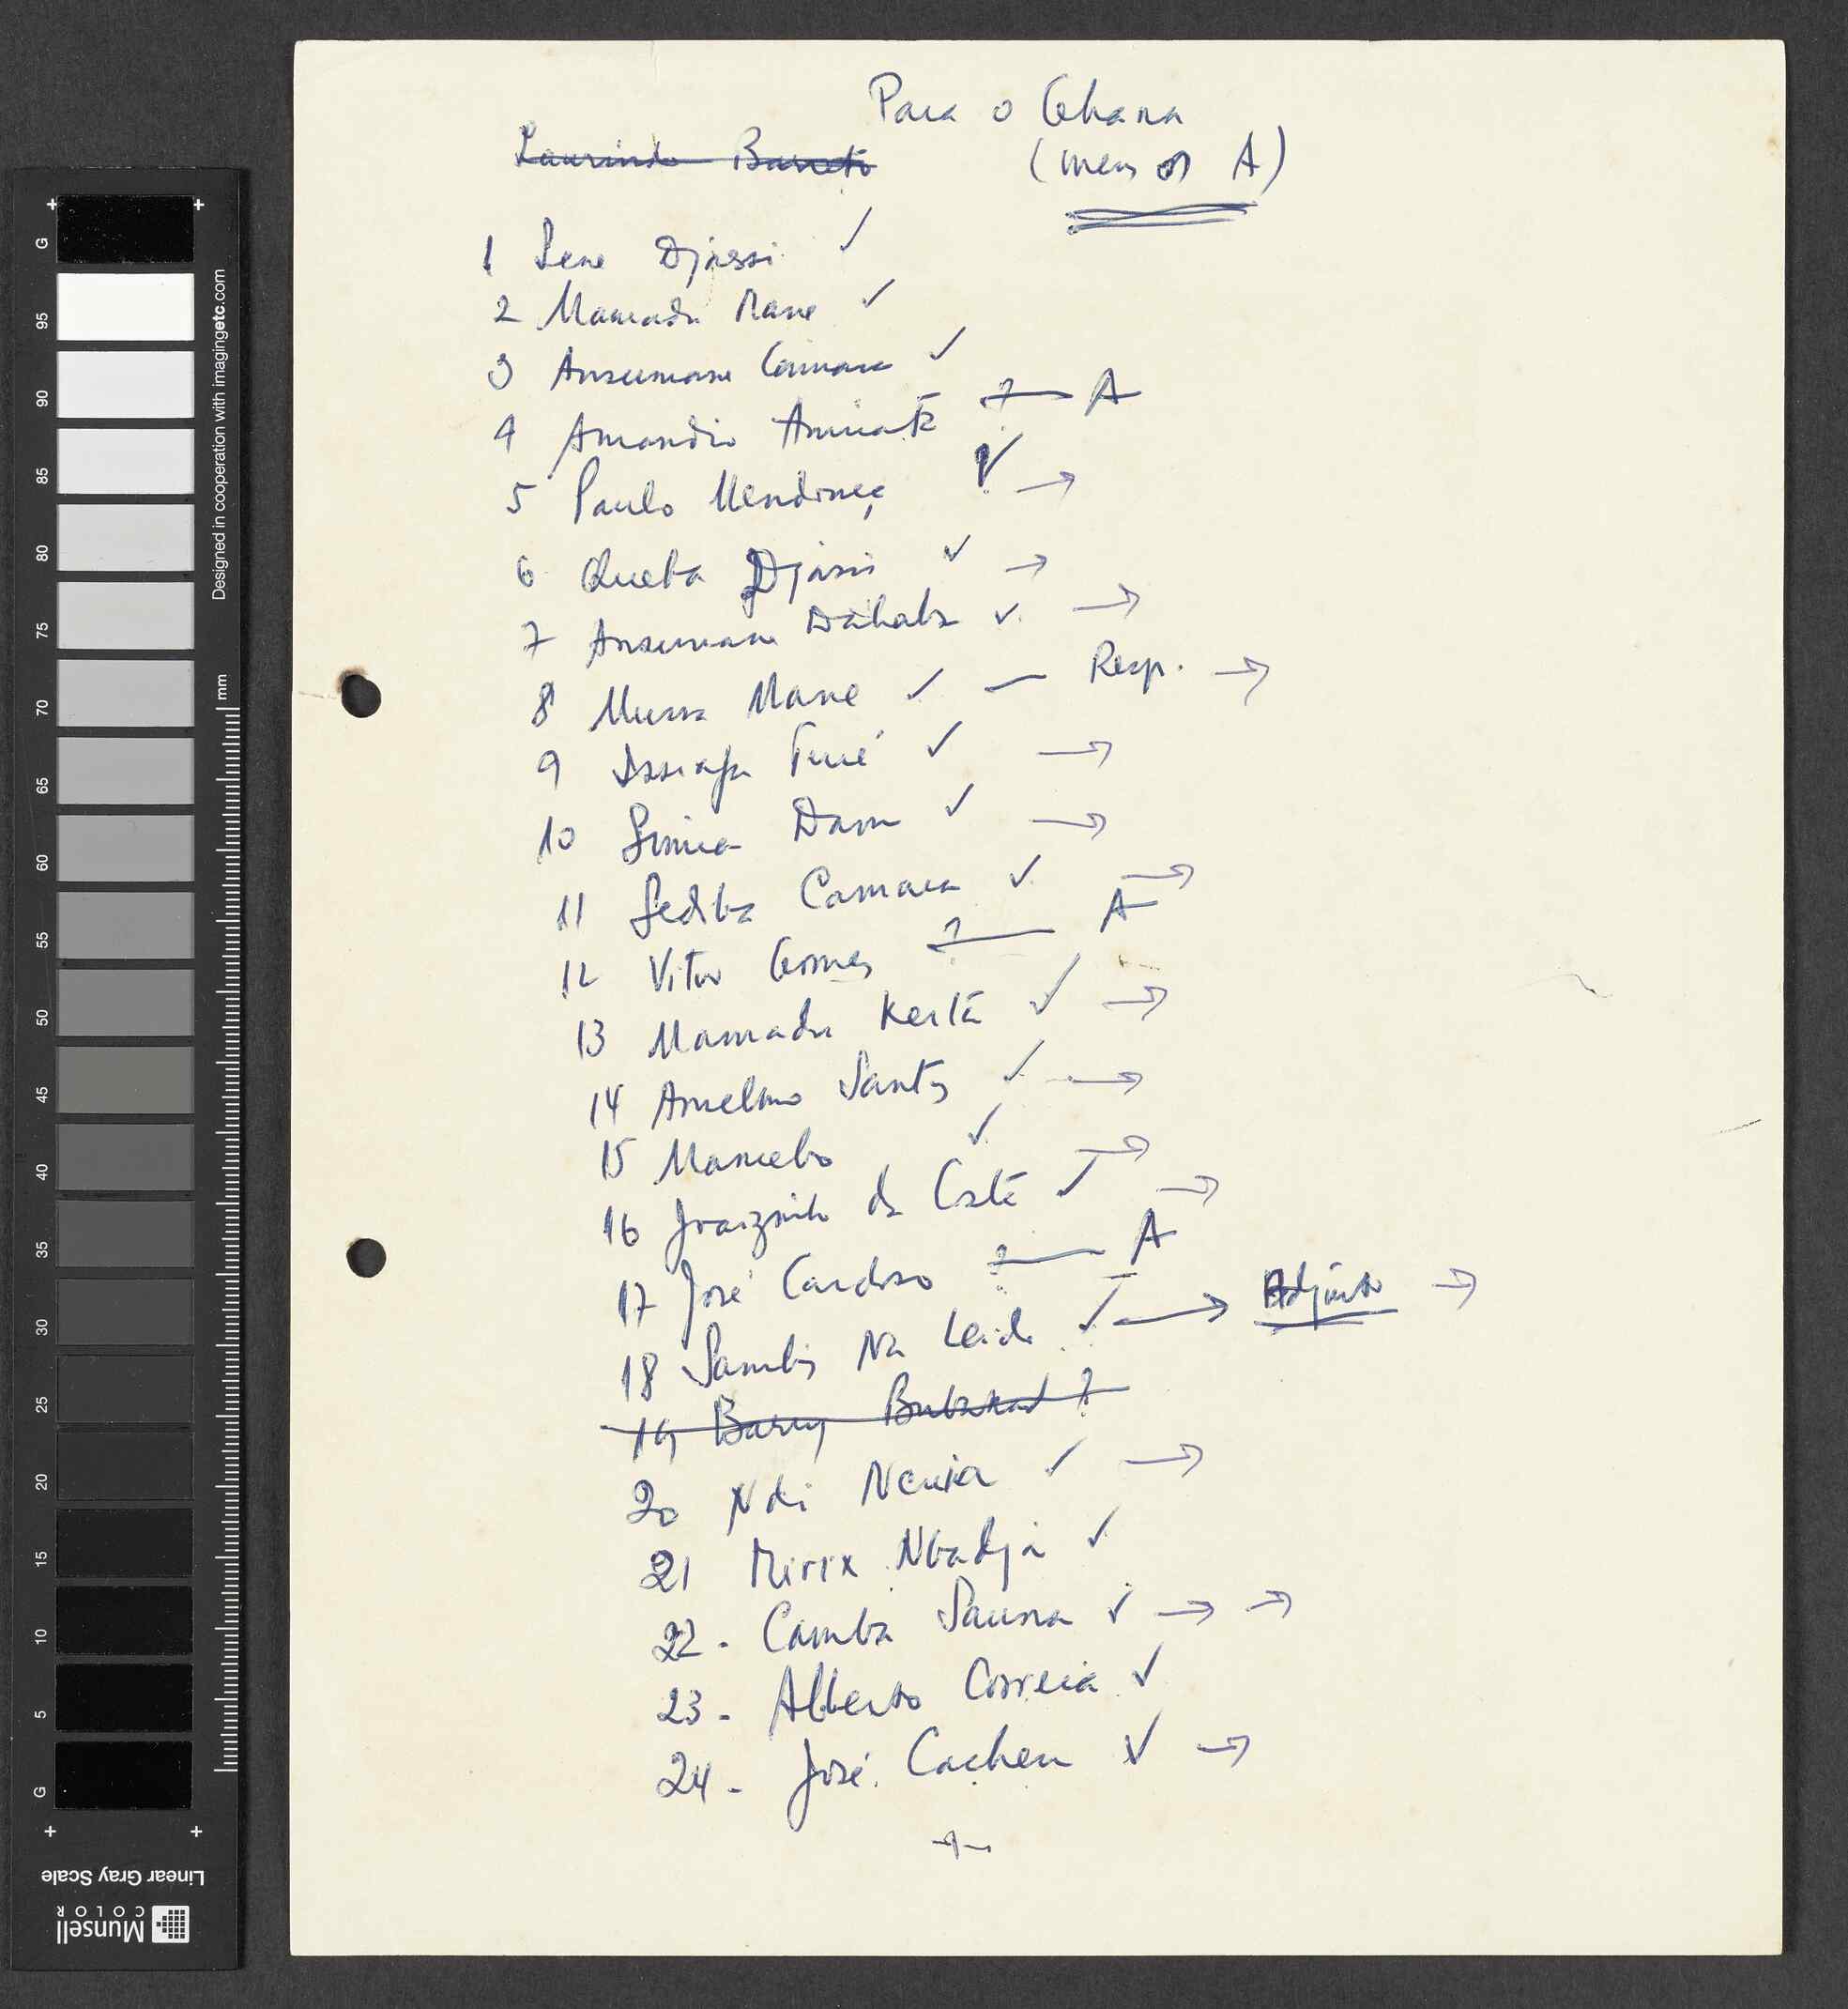 Para o Ghana
Laurindo Barreto
(menos A)
1 Sene Djassi ✓
2 Mamadu Mane ✓
3 Ansumane Camara ✓
4 Amandio ? — A
5 Paulo Mendonça ✓ →
6 Queba Djassi ✓ →
7 Ansumane Dahaba ✓ →
8 Mussa Mane ✓ — Resp. →
9 Turé ✓ →
10 Dam ✓ →
11 Sediba Camara ✓ →
12 Vitor Gomes ? — A
13 Mamadu Keita ✓ →
14 Anselmo Santos ✓ →
15 Mancebo ✓ →
16 Joãozinho da Costa ✓ →
17 José Cardoso ? — A
18 Na ✓ → Adjunto →
19 Barry Bubakar ?
20 Ndi ✓ →
21 Nbadja ✓
22 - Camba Sauna ✓ → →
23 - Alberto Correia ✓
24 - José Cacheu ✓ →
G
95
90
85
80
75
70
65
60
55
50
45
40
35
30
25
20
15
10
5
G
mm
Designed in cooperation with imagingetc.com
Linear Gray Scale
Munsell
COLOR